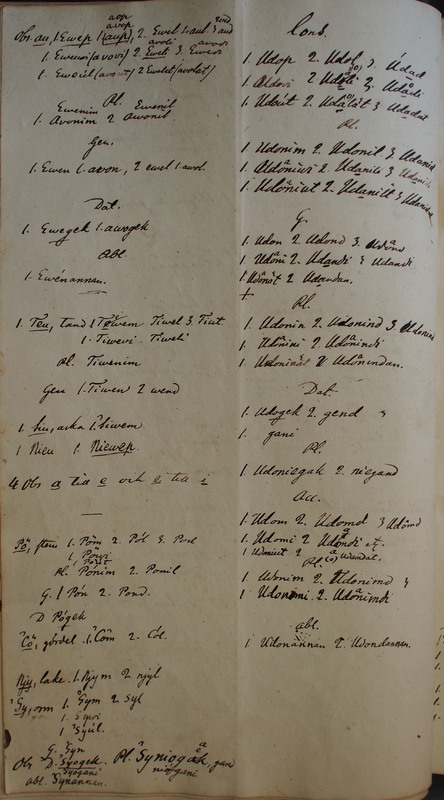 Obs au, 1 Ewep 1 (aup) 2. Ewel 1. aul. 3 aud
1. Ewewi (avovi) 2. Eweli 3. Ewedi
1. Eweüt (avout) 2 Ewelet (avolat)
Pl.
Ewenim Ewenil
1. Avonim 2 Awonil
Gen.
1. Ewen 1. awon, 2 ewel 1. awol.
Dat.
1. Ewegek 1. awogek
Abl.
1. Ewénannan.
1. Teu, tand 1 Tewem Tiwel 3. Tiut
1. Tiwewi. Tiweli
Pl. Tiwenim
Gen 1. Tiwen 2 wend
1. hiu, aska 1. hiwem
1 Nieu 1. Niewep.
4 Obs a till e och e till i
Pö, sten 1. Pöm 2. Pöl 3. Pod
1. Pöwi
Pöüt
Pl. Pönim 2. Ponil
G. 1 Pon 2. Pond.
D Pögek
Cö, gördel. 1. Cöm 2. Cöl.
Njy, lake. 1. Njym 2 njyl
Sy, orm 1. Sym 2 Syl
1. Sywi
1 Syüt.
G. Syn
Obs D. Syogek. Pl. Syniogak gan
Syogani niogani
abl. Synannan.
Cons.
1. Udop 2. Udol 3. Udad
1. Aldovi 2 Udali 3. Udadi
1. Udoüt 2. Udalät 3 Udadat
Pl.
1. Udonim 2. Udonil 3. Udanid
1. Aldöniwi 2. Udanili 3 Udanidi
1. Udöniut 2. Udanilt 3
G.
1. Udon 2. Udond 3. Udond
1. Udöni 2. Udandi 3 Udandi
1. Udönöt 2 Udandan.
+ Pl.
1. Udonin 2. Udonind 3. Udonind
1. Udönini 2. Udönindi
1. Udoninät 2 Udönindan.
Dat.
1. Udogek 2. gend 3
1. gani
Pl.
1. Udoniegak 2. niegand
Acc.
1. Udom 2. Udomd 3 Udömd
1. Udomi 2. Udomdi
1. Udomiut 2 Udomdat.
Pl.
1. Udonim 2. Udonimd 3
1. Udonimi 2. Udönimdi
abl.
1. Udonännan 2. Udondannan.